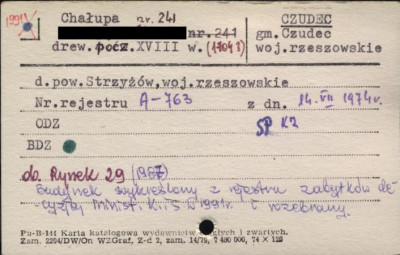 1991 Chałupa nr. 241 CZUDEC
nr. 241 gm. Czudec
drew. pocz. XVIII w. (1704 ?) woj. rzeszowskie
d. pow. Strzyżów, woj. rzeszowskie
Nr. rejestru A-763 z dn. 14. VII 1974 r.
ODZ SP K2
BDZ
ob. Rynek 29 (1987)
Budynek wykreślony z rejestru zabytków de-
cyzją Minist. K. i S. 1991 r. i rozebrany.
Pu-B-144 Karta katalogowa wydawnictw ciągłych i zwartych.
Zam. 2204/DW/On WZGraf, Z-d 2, zam. 14/79, 7 480 000, 74 X 125